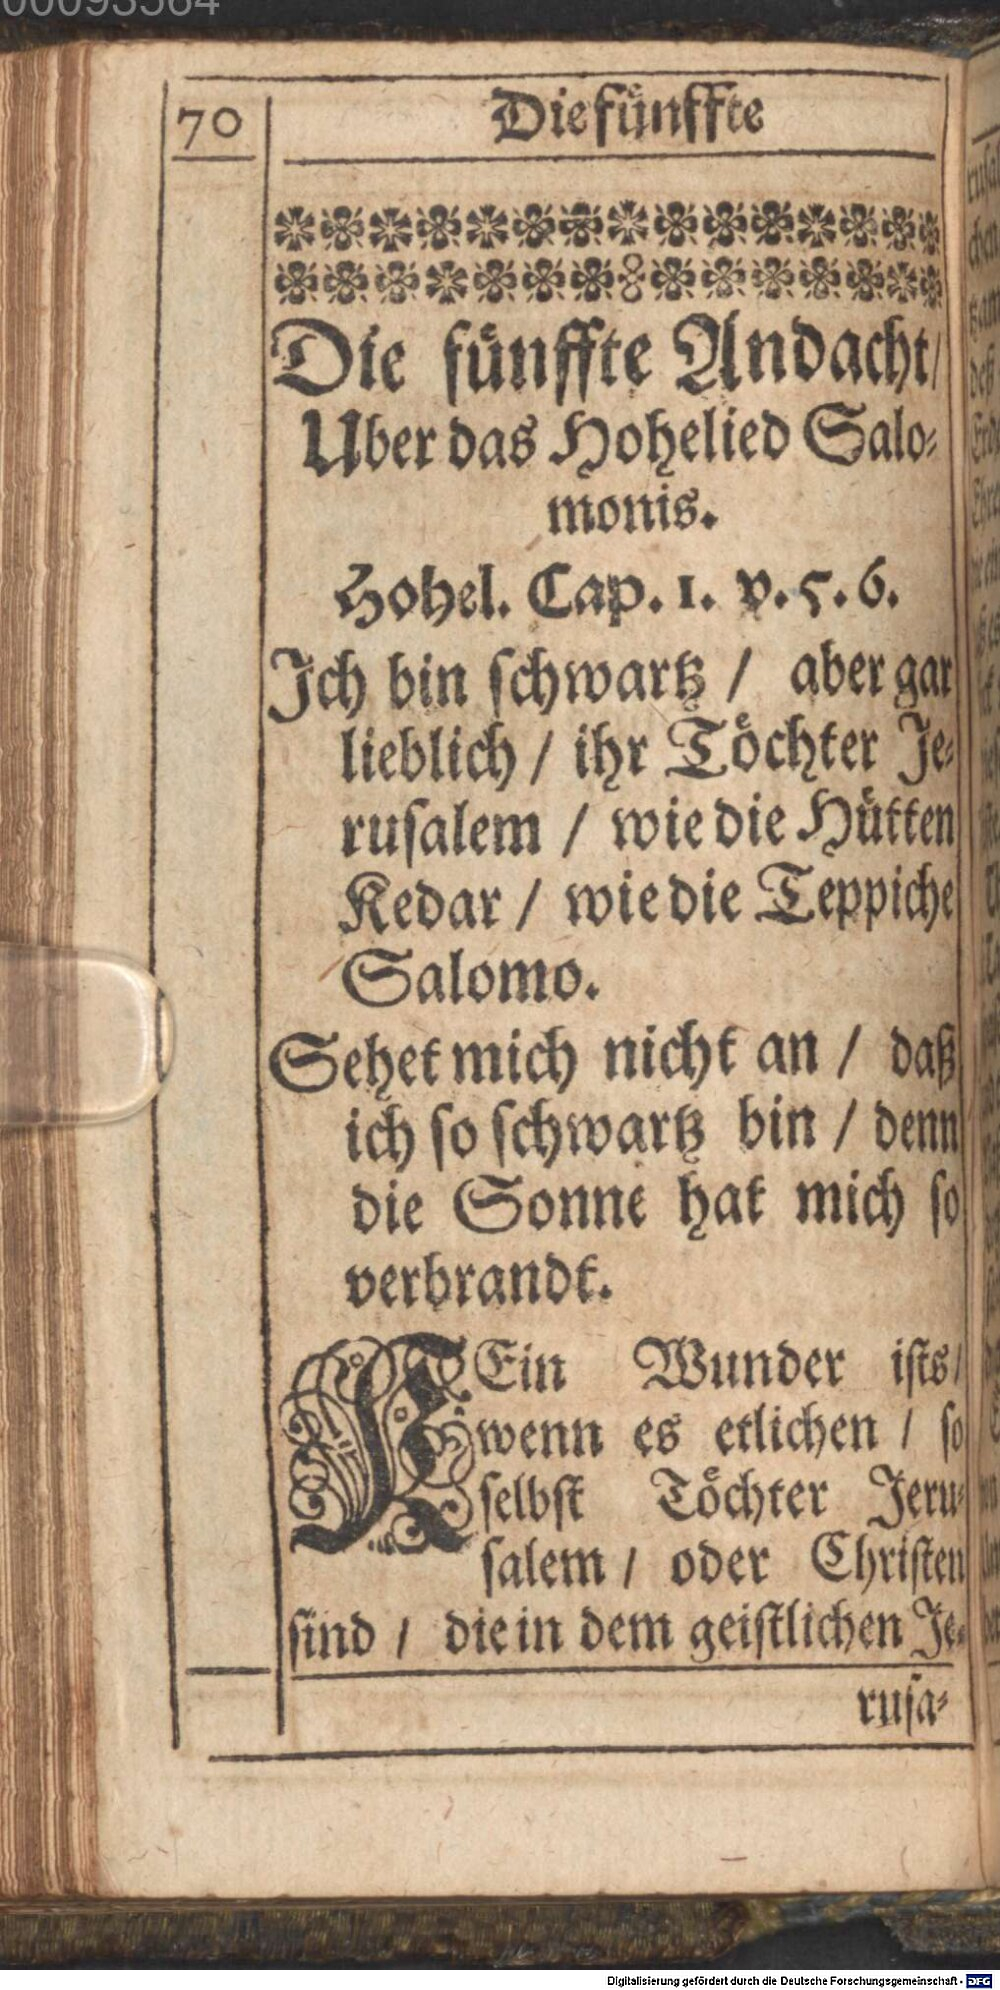 70
Die fünffte
Die fünffte Andacht/
Uber das Hohelied Salo-
monis.
Hohel. Cap. 1. v. 5. 6.
Ich bin schwartz / aber gar
lieblich / ihr Töchter Je-
rusalem / wie die Hütten
Kedar / wie die Teppiche
Salomo.
Sehet mich nicht an / daß
ich so schwartz bin / denn
die Sonne hat mich so
verbrandt.
KEin Wunder ists/
wenn es etlichen / so
selbst Töchter Jeru-
salem / oder Christen
sind / die in dem geistlichen Je-
rusa-
Digitalisierung gefördert durch die Deutsche Forschungsgemeinschaft - DFG